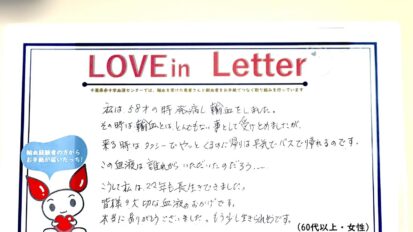 LOVE in Letter
千葉県赤十字血液センターでは、輸血を受けた患者さんと献血者をお手紙でつなぐ取り組みを行っています
私は58才の時 発病し 輸血をしました。
その時は 輸血とは とんでもない事として 受けとめましたが、
来る時は タクシーでやっと くるのに 帰りは 平気で バスで帰れるのです。
この血液は 誰れから いただいたのだろう……
こうして私は 22年も長生きできました。
皆様の大切な血液のおかげです。
本当にありがとうございました。もう少し生きられそうです。
(60代以上・女性)
輸血経験者の方から
お手紙が届いたっち!